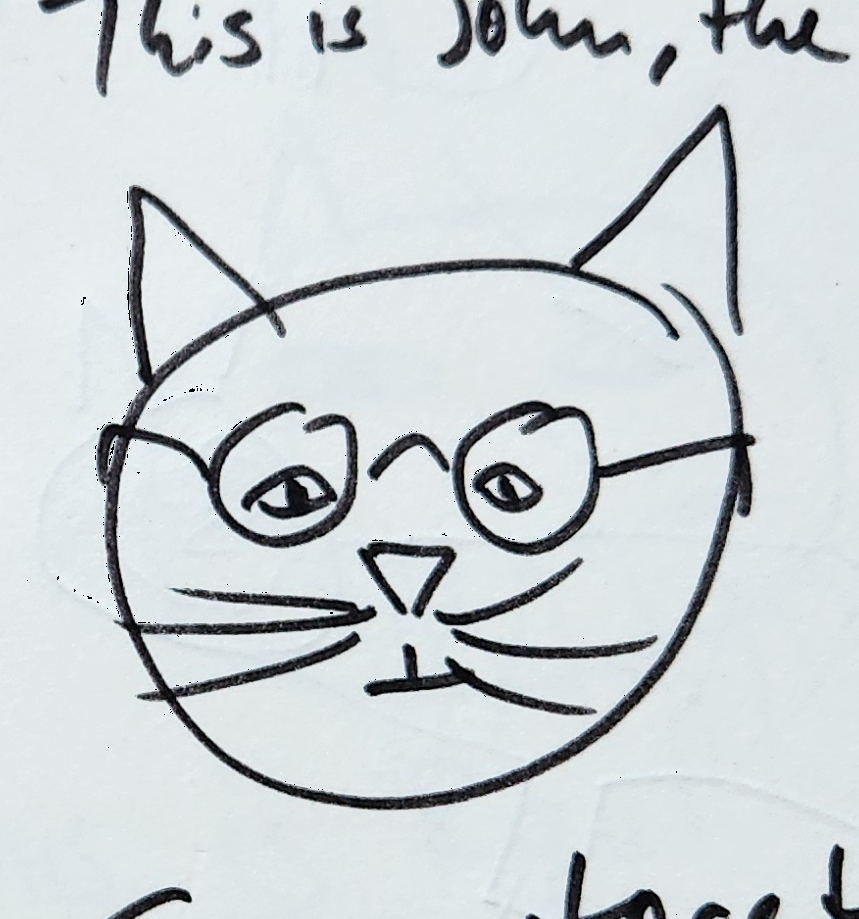 This is John, the